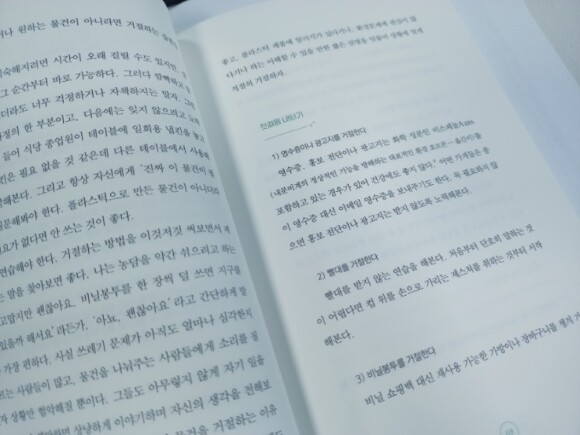 거나 원하는 물건이 아니라면 거절하는
익숙해지려면 시간이 오래 걸릴 수도 있지만,
그 순간부터 바로 가능하다. 그러다 깜빡하고
더라도 너무 걱정하거나 자책하지는 말자. 그
과정의 한 부분이고, 다음에는 잊지 않으려고 노
들어 식당 종업원이 테이블에 일회용 냅킨을 놓고
킨은 필요 없을 것 같은데 다른 테이블에서 사용해
해본다. 그리고 항상 자신에게 '진짜 이 물건이 필
질문해봐야 한다. 플라스틱으로 만든 물건이 아니더라도
요가 없다면 안 쓰는 것이 좋다.
연습해야 한다. 거절하는 방법을 이것저것 써보면서 재
는 말을 찾아보면 좋다. 나는 농담을 약간 섞으려고 하는
고맙지만 괜찮아요. 비닐봉투를 한 장씩 덜 쓰면 지구를
있을까 해서요'라든가, '아뇨, 괜찮아요'라고 간단하게 말
가장 편하다. 사실 쓰레기 문제가 아직도 얼마나 심각한지
르는 사람들이 많고, 물건을 나눠주는 사람들에게 소리를 질
상황만 험악해질 뿐이다. 그들도 아무렇지 않게 자기 일을
상냥하게 이야기하며 자신의 생각을 전해보
물건을 거절하는 이유
좋고, 플라스틱 제품에 알러지가 있다거나, 환경문제에 관심이 많
다거나 하는 이해할 수 있을 만한 짧은 설명을 덧붙여 상황에 맞게
적절히 거절하자.
한걸음 나아가기
1) 영수증이나 광고지를 거절한다
영수증, 홍보 전단이나 광고지는 화학 성분인 비스페놀A BPA
(내분비계의 정상적인 기능을 방해하는 대표적인 환경 호르몬—옮긴이)을
포함하고 있는 경우가 있어 건강에도 좋지 않다. 어떤 가게들은 종
이 영수증 대신 이메일 영수증을 보내주기도 한다. 꼭 필요하지 않
으면 홍보 전단이나 광고지는 받지 않도록 노력해본다.
2) 빨대를 거절한다
빨대를 받지 않는 연습을 해본다. 처음부터 단호히 말하는 것
이 어렵다면 컵 위를 손으로 가리는 제스처를 취하는 것부터 시작
해본다.
3) 비닐봉투를 거절한다
비닐 쇼핑백 대신 재사용 가능한 가방이나 장바구니를 챙겨